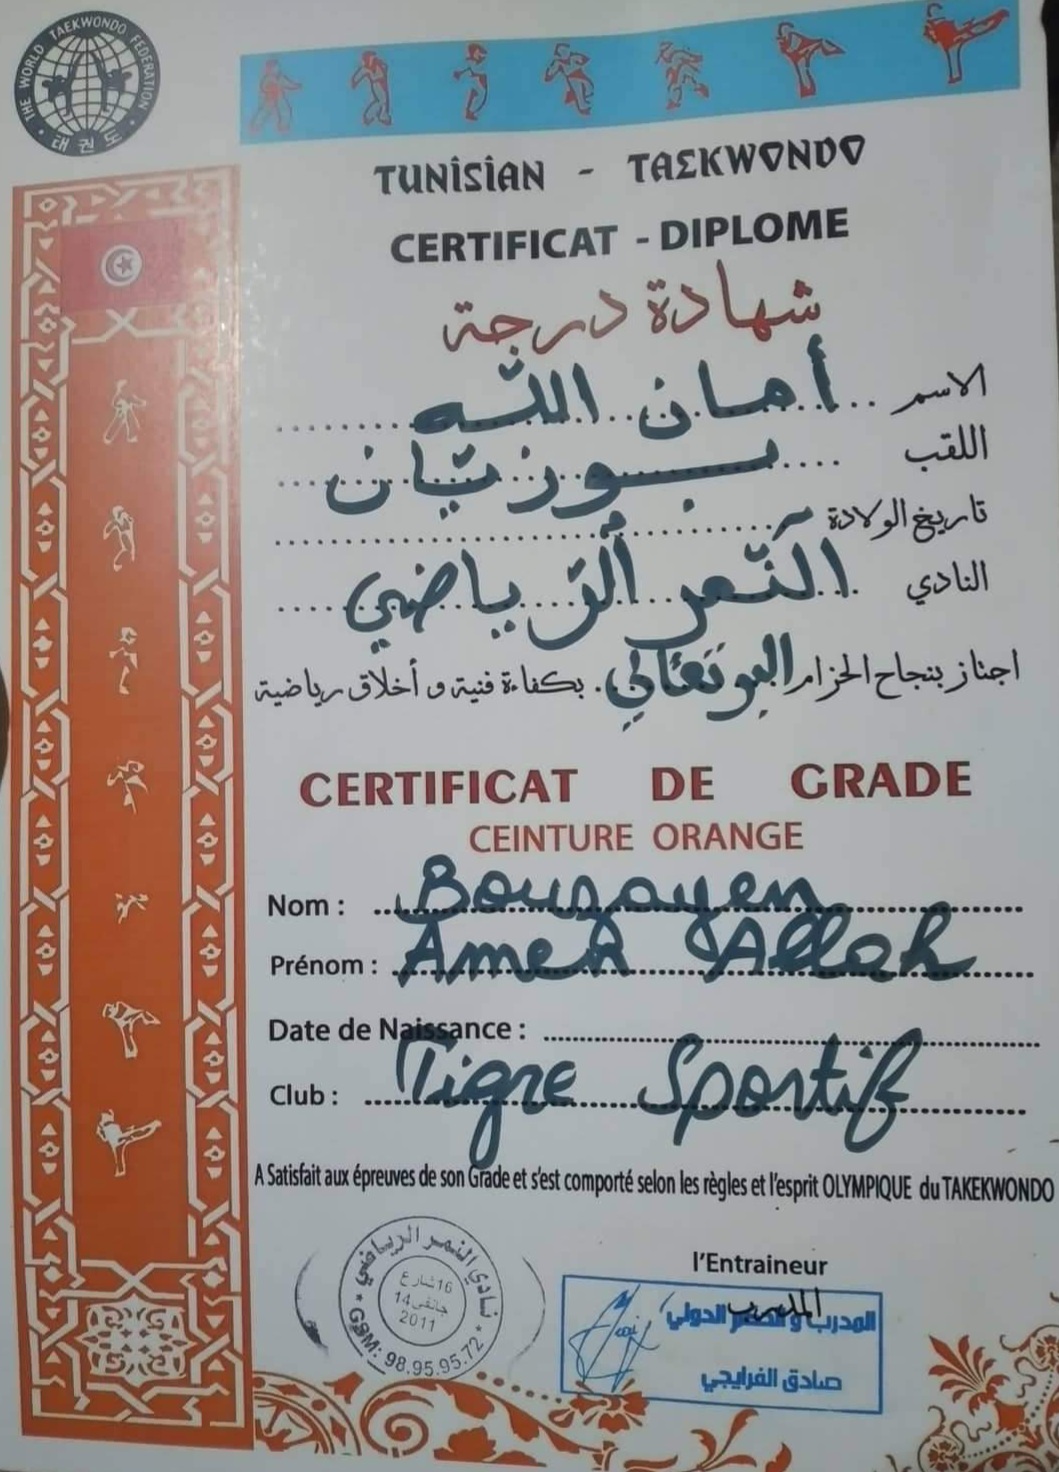 THE WORLD TAEKWONDO FEDERATION
태권도
TUNiSiAN - TAEKWONDO
CERTIFICAT - DIPLOME
شهادة درجة
الاسم أمان اللّه
اللقب بوزيّان
تاريخ الولادة
النادي النّمر الرّياضي
اجتاز بنجاح الحزام البرتقالي بكفاءة فنية و أخلاق رياضية
CERTIFICAT DE GRADE
CEINTURE ORANGE
Nom : Bouzayen
Prénom : Amen Allah
Date de Naissance :
Club : Tigre Sportif
A Satisfait aux épreuves de son Grade et s'est comporté selon les règles et l'esprit OLYMPIQUE du TAKEKWONDO
نادي النمر الرياضي
16 شارع
14 جانفي
2011
GSM: 98.95.95.72
l'Entraineur
المدرب
المدرب و الدولي
صادق الفرايجي